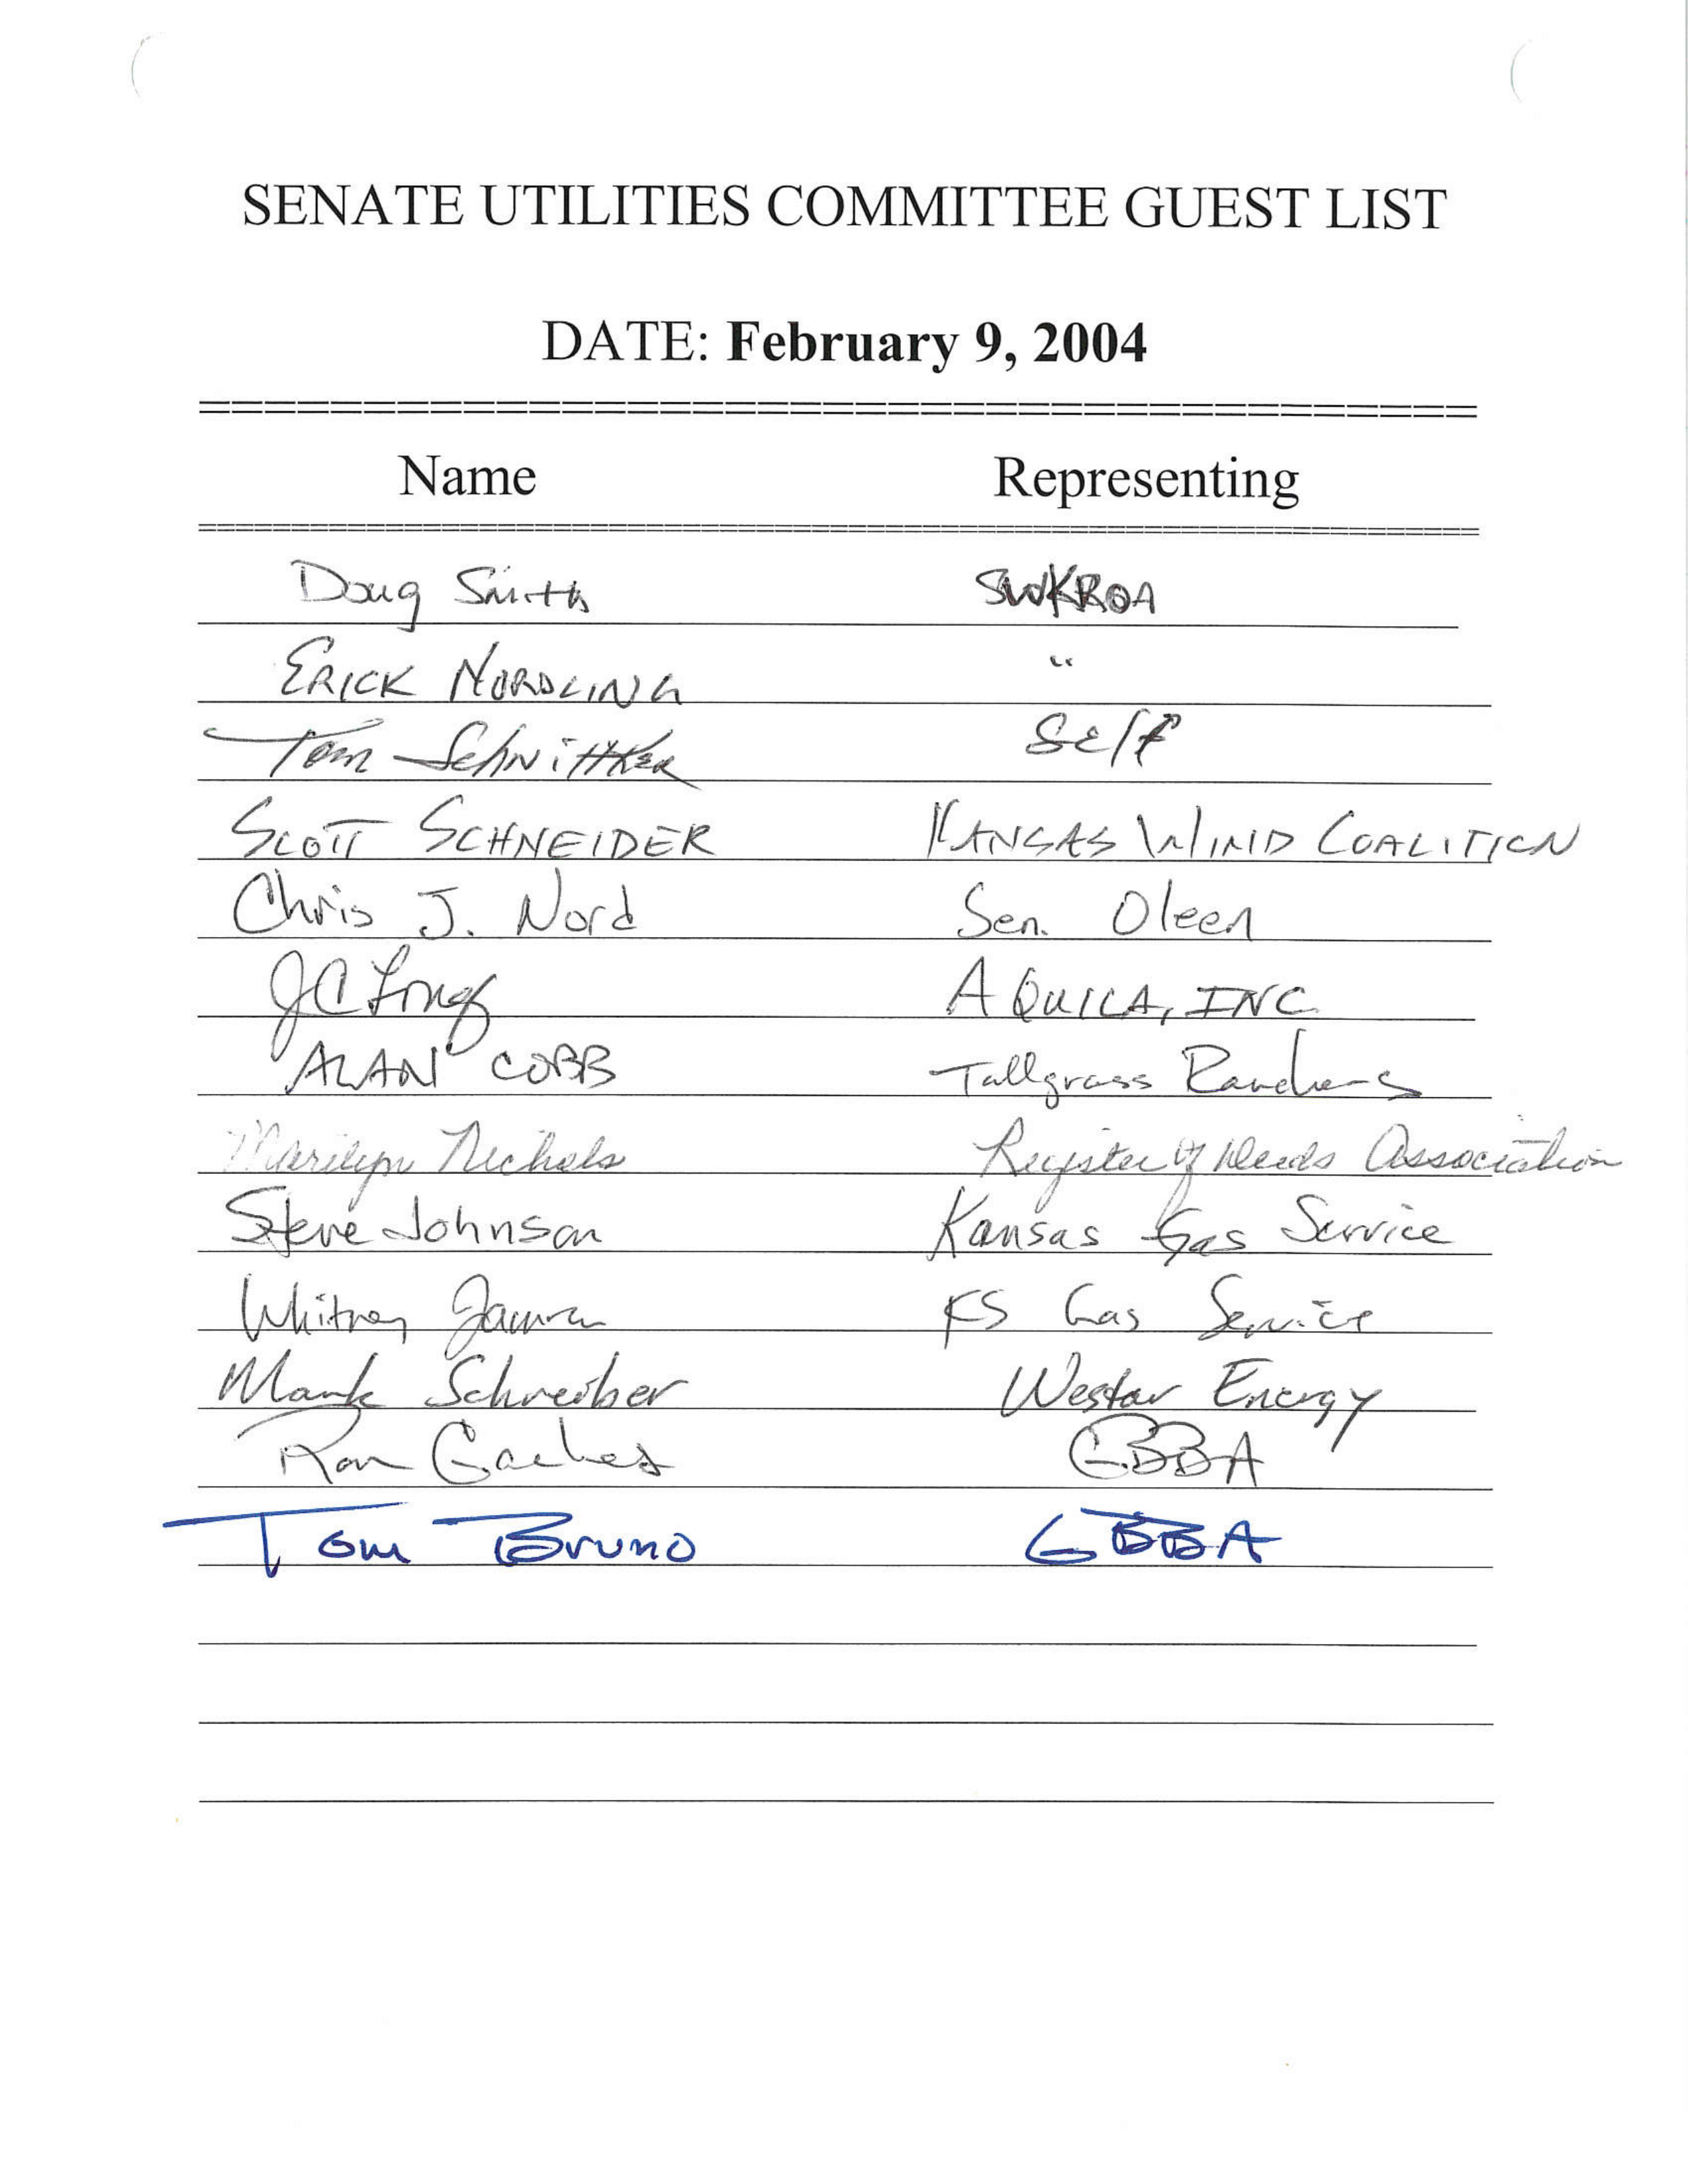 SENATE UTILITIES COMMITTEE GUEST LIST
DATE: February 9, 2004
Name Representing
Doug Smith SWKROA
ERICK NORDLING "
Tom Schnittker Self
SCOTT SCHNEIDER KANSAS WIND COALITION
Chris J. Nord Sen. Oleen
JC Long AQUILA, INC.
ALAN COBB Tallgrass Ranchers
Marilyn Nichols Register of Deeds Association
Steve Johnson Kansas Gas Service
Whitney KS Gas Service
Mark Schreiber Westar Energy
Ron Gaches GBBA
Tom Bruno GBBA